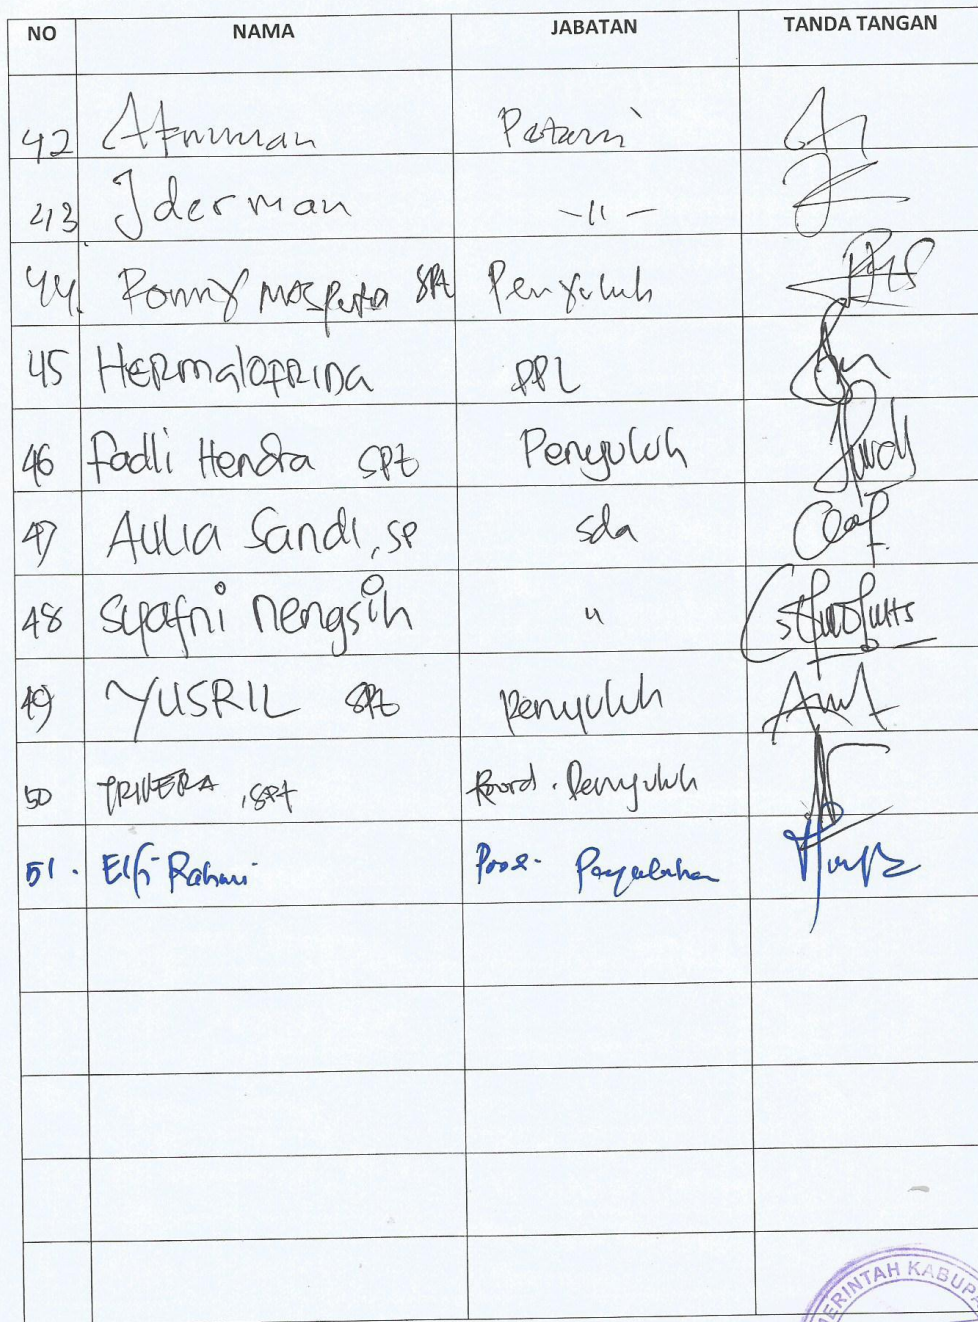 NO NAMA JABATAN TANDA TANGAN
42 Petani
43 Iderman -11-
44. Ronny SPt Penyuluh
45 Hermalofrina PPL
46 Fadli Hendra SPt Penyuluh
47 Aulia Sandi, SP sda
48 Syafni Nengsih "
49 YUSRIL SPt Penyuluh
50 TRIVERA, SPt Koord. Penyuluh
51. Elfi Rahmi
MERINTAH KABUPA